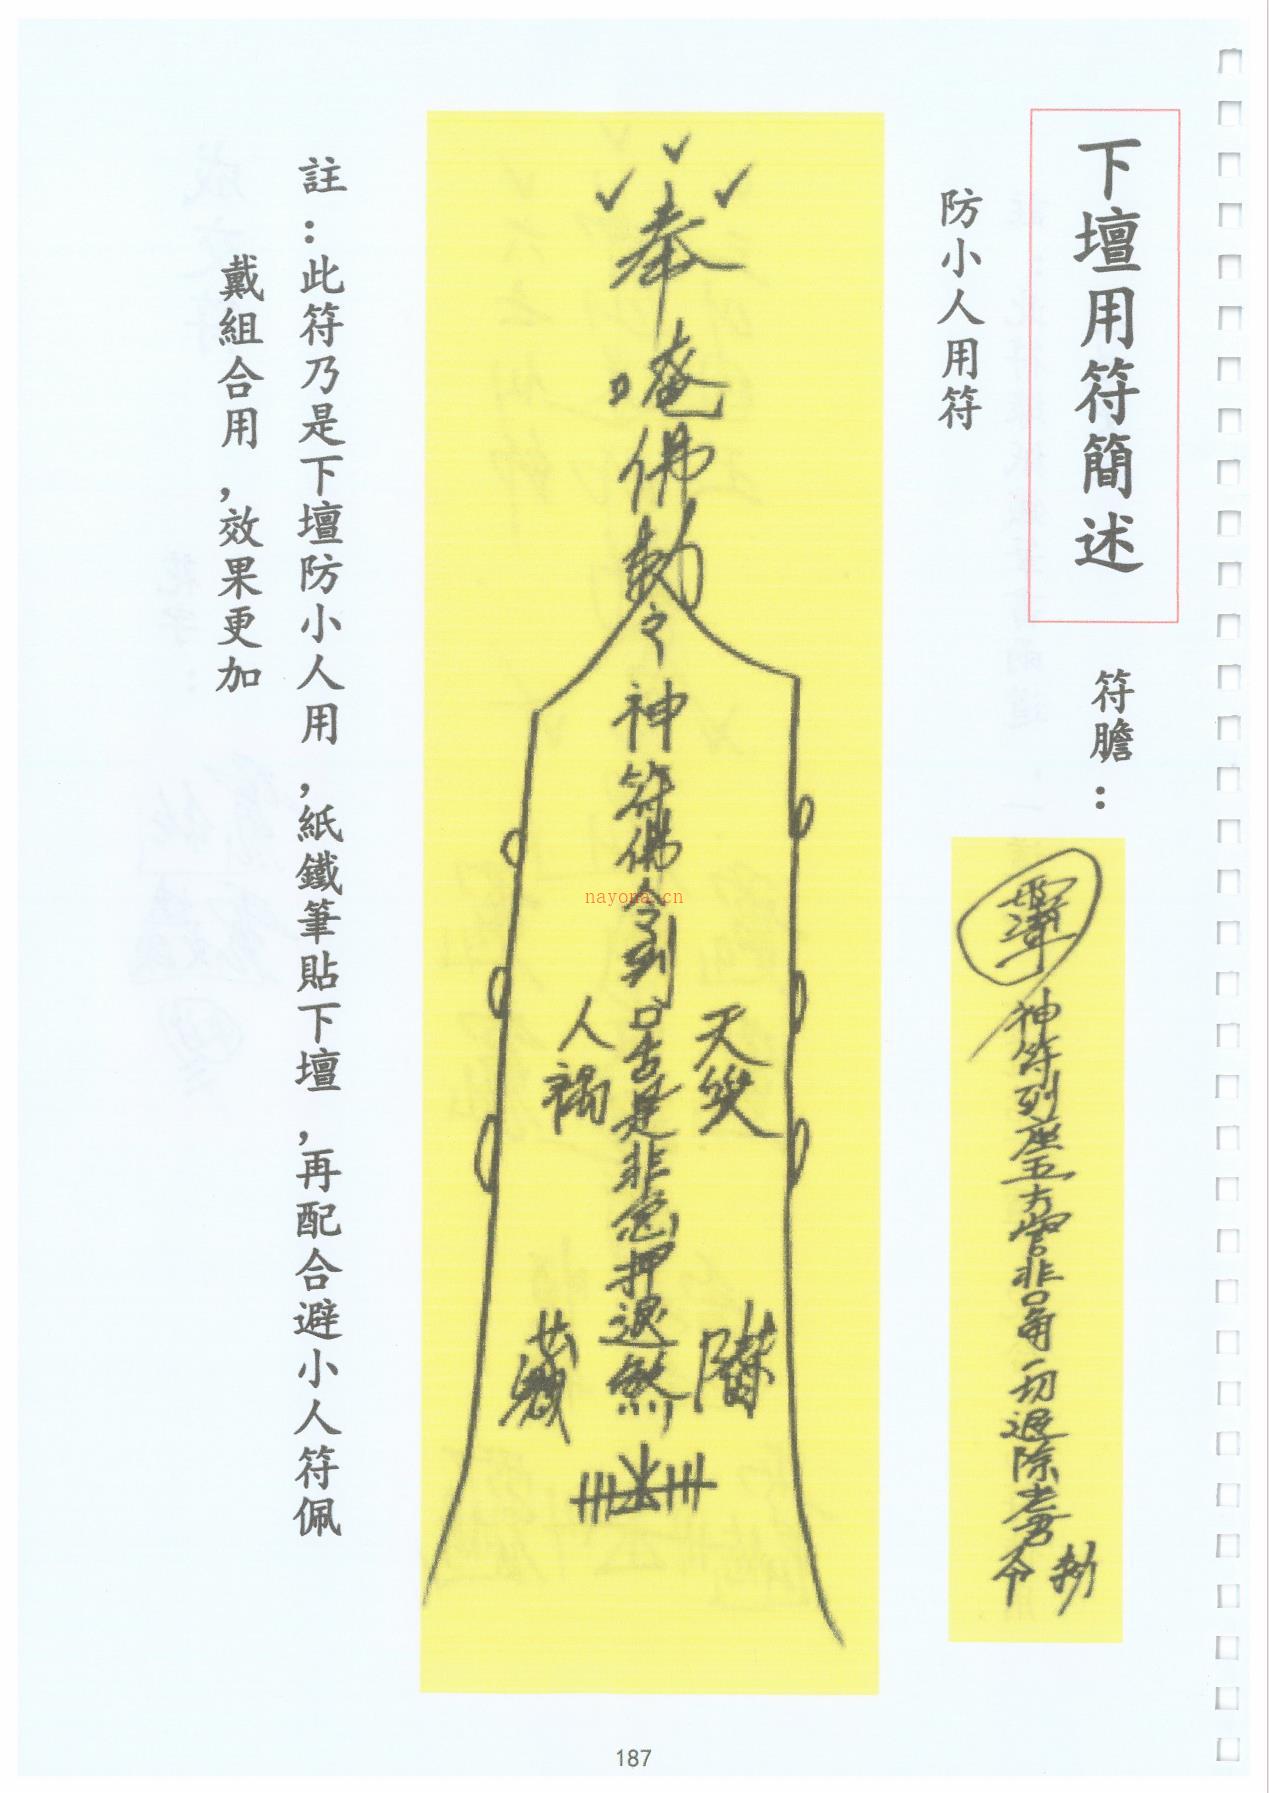 下壇用符簡述
符膽：
神符列座五方營非口角一切退除老君
令 勅
防小人用符
奉
唵佛勅
令
神符佛令到口舌是非急押退煞
天災
人禍
註：此符乃是下壇防小人用，紙鐵筆貼下壇，再配合避小人符佩
戴組合用，效果更加
nayona.cn
187